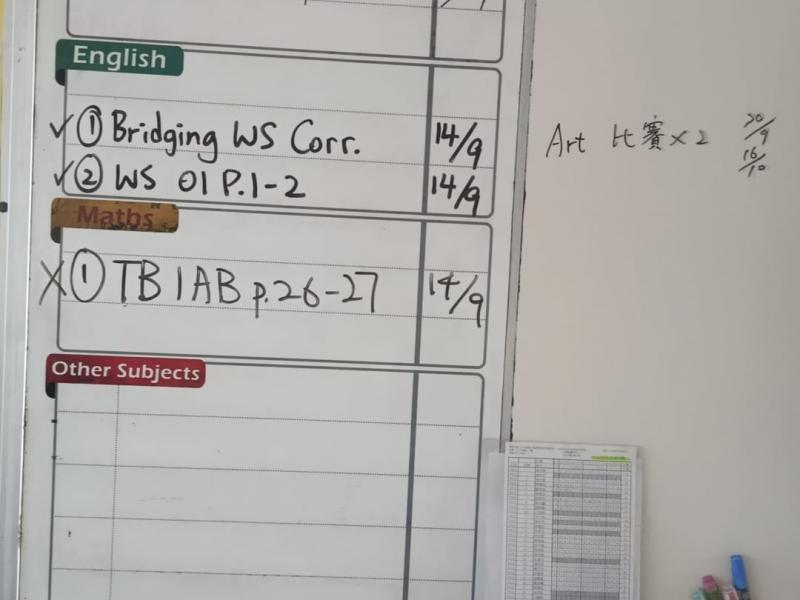 English
✓ ① Bridging WS Corr. 14/9
✓ ② WS 01 P.1-2 14/9
Maths
X ① TB 1AB p.26-27 14/9
Other Subjects
Art 比賽 × 2 20/9
16/10